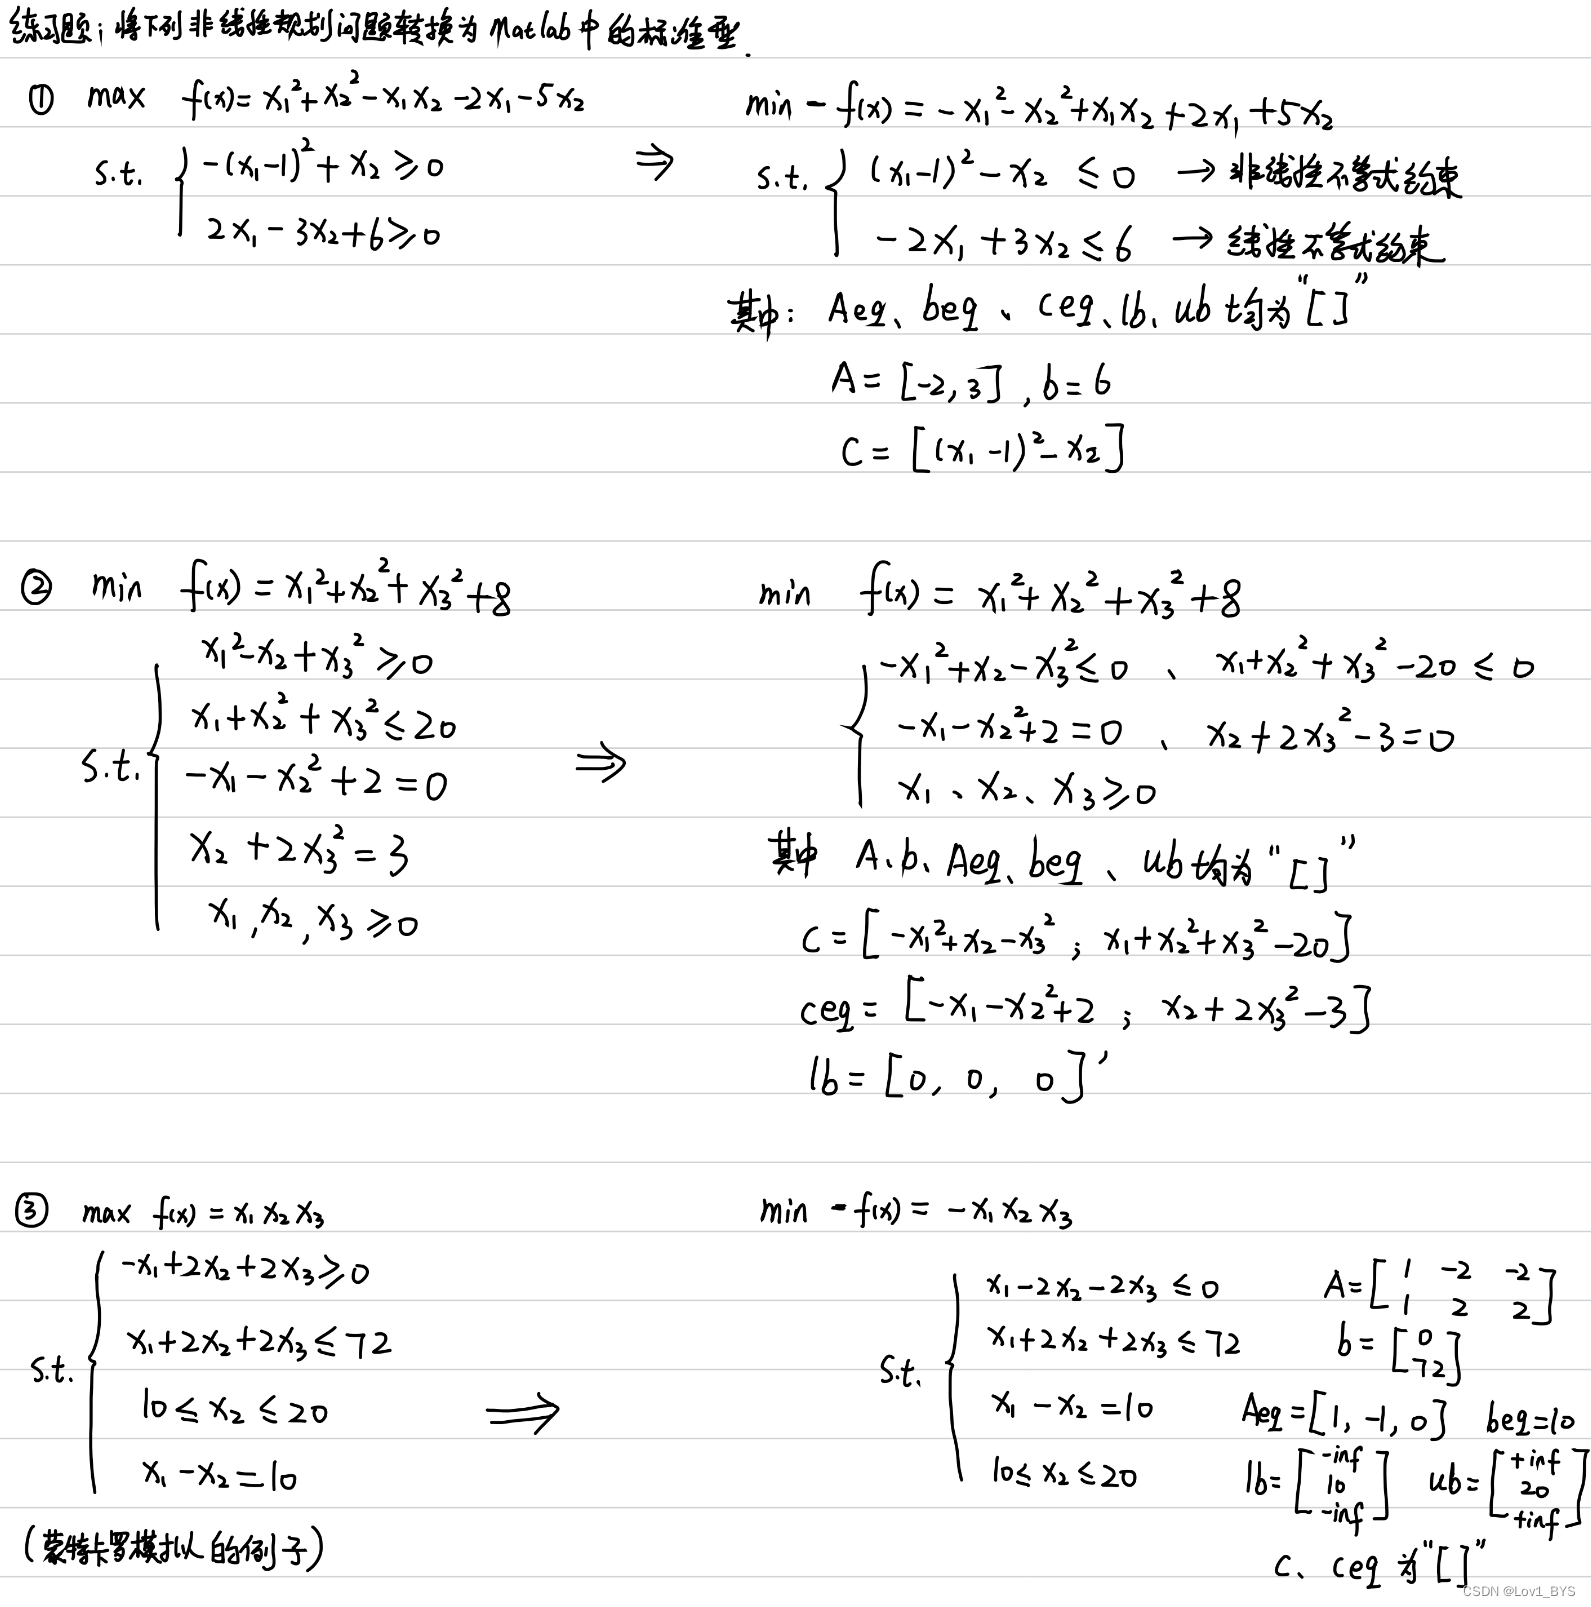 练习题：将下列非线性规划问题转换为Matlab中的标准型.
① max f(x)= x₁²+x₂²-x₁x₂-2x₁-5x₂
s.t. { -(x₁-1)²+x₂≥0
2x₁-3x₂+6≥0
⇒
min -f(x)=-x₁²-x₂²+x₁x₂+2x₁+5x₂
s.t. { (x₁-1)²-x₂ ≤ 0 → 非线性不等式约束
-2x₁+3x₂≤6 → 线性不等式约束
其中: Aeq、beq、ceq、lb、ub均为“[ ]”
A=[-2,3],b=6
C=[(x₁-1)²-x₂]
② min f(x)=x₁²+x₂²+x₃²+8
s.t. { x₁²-x₂+x₃²≥0
x₁+x₂²+x₃²≤20
-x₁-x₂²+2=0
x₂+2x₃²=3
x₁,x₂,x₃≥0
⇒
min f(x)=x₁²+x₂²+x₃²+8
{ -x₁²+x₂-x₃²≤0 、 x₁+x₂²+x₃²-20≤0
-x₁-x₂²+2=0 、 x₂+2x₃²-3=0
x₁、x₂、x₃≥0
其中 A.b、Aeq、beq、ub均为“[ ]”
C=[-x₁²+x₂-x₃² ; x₁+x₂²+x₃²-20]
ceq=[-x₁-x₂²+2 ; x₂+2x₃²-3]
lb=[0, 0, 0]'
③ max f(x)=x₁x₂x₃
s.t. { -x₁+2x₂+2x₃≥0
x₁+2x₂+2x₃≤72
10≤x₂≤20
x₁-x₂=10
(蒙特卡罗模拟的例子)
⇒
min -f(x)=-x₁x₂x₃
s.t. { x₁-2x₂-2x₃≤0
x₁+2x₂+2x₃≤72
x₁-x₂=10
10≤x₂≤20
A=[1 -2 -2
1 2 2]
b=[0
72]
Aeq=[1,-1,0] beq=10
lb=[-inf
10
-inf]
ub=[+inf
20
+inf]
C、ceq为“[ ]”
CSDN @Lov1_BYS